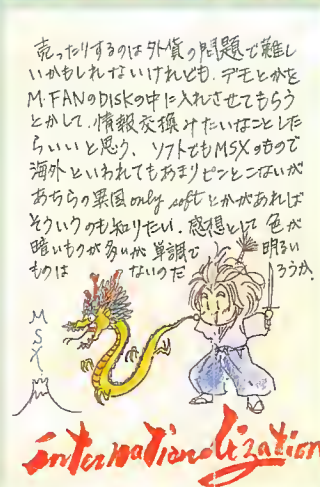 売ったりするのは外貨の問題で難し
いかもしれないけれども、デモとかを
M・FANのDISKの中に入れさせてもらう
とかして、情報交換みたいなことした
らいいと思う、ソフトでもMSXのもので
海外といわれてもあまりピンとこないが
あちらの異国only softとかがあれば
そういうのも知りたい、感想として 色が
暗いものが多いが 単調で 明るい
ものは ないのだろうか。
MSX
internationalization